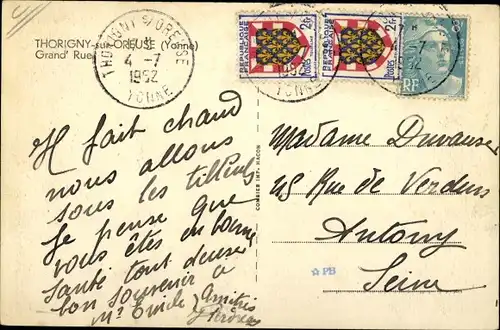 THORIGNY-sur-OREUSE (Yonne)
Grand' Rue
THORIGNY S/OREUSE
4 -7
1952
YONNE
REPUBLIQUE FRANÇAISE
1952
YONNE
RF
Il fait chaud
nous allons
sous les tilleuls
Je pense que
vous êtes en bonne
santé tout
bon souvenir à
Mr Emile Amitiés
COMBIER IMP. MACON
Madame
45 Rue de Verdun
Antony
Seine
☆ PB